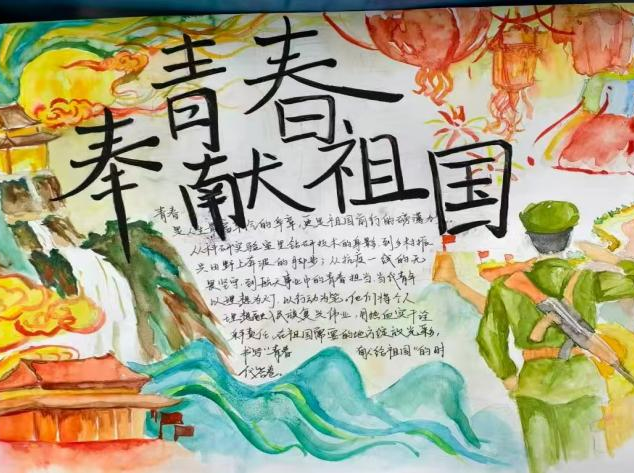 青春
奉献祖国
青春
是人生最有朝气的年章,更是祖国前行的磅礴力
从科研实验室里钻研技术的身影,到乡村振
兴田野上奔波的脚步;从抗疫一线的无
畏坚守,到航天事业中的青春担当,当代青年
以理想为灯,以行动为笔,他们将个人
理想融入民族复兴伟业,用热血实干诠
释责任,在祖国需要的地方绽放光芒,
书写“青春 献给祖国”的时
代答卷。